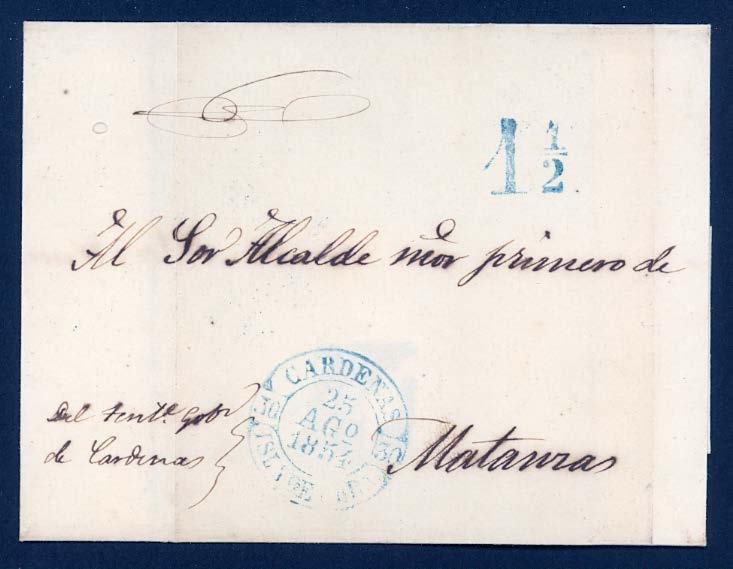 1 1/2
Al Sor Alcalde mor primero de
Matanzas
Del Tente. Gobr
de Cardenas
CARDENAS
30 30
25
AGO
1854
ISLA DE CUBA